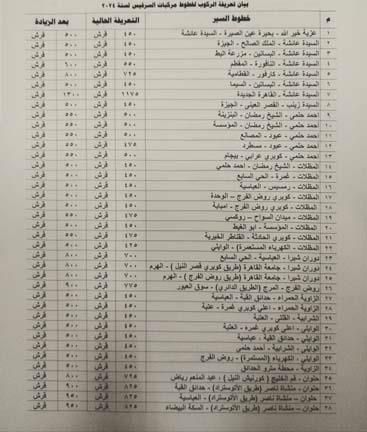 بيان تعريفة الركوب لخطوط مركبات السرفيس لسنة ٢٠٢٤
م خطوط السير التعريفة الحالية بعد الزيادة
١ عزبة خير الله - بحيرة عين الصيرة - السيدة عائشة ٤٥٠ قرش ٥٠٠ قرش
٢ السيدة عائشة - الملك الصالح - الجيزة ٤٥٠ قرش ٥٠٠ قرش
٣ السيدة عائشة - البساتين - مزرعة البط ٤٥٠ قرش ٥٠٠ قرش
٤ السيدة عائشة - النافورة - المقطم ٥٥٠ قرش ٦٠٠ قرش
٥ السيدة عائشة - كارفور - القطامية ٧٢٥ قرش ٨٠٠ قرش
٦ السيدة عائشة - البساتين - السيما ٤٥٠ قرش ٥٠٠ قرش
٧ السيدة عائشة - القاهرة الجديدة ١١٧٥ قرش ١٣٠٠ قرش
٨ السيدة زينب - القصر العيني - الجيزة ٤٥٠ قرش ٥٠٠ قرش
٩ أحمد حلمي - الشيخ رمضان - البنزينة ٥٠٠ قرش ٥٥٠ قرش
١٠ احمد حلمي - الشيخ رمضان - المؤسسة ٥٠٠ قرش ٥٥٠ قرش
١١ احمد حلمي - عبود - المصانع ٥٠٠ قرش ٥٥٠ قرش
١٢ احمد حلمي - عبود - مسطرد ٤٧٥ قرش ٥٥٠ قرش
١٣ احمد حلمي - كوبري عرابي - بيجام ٥٠٠ قرش ٥٥٠ قرش
١٤ المظلات - الشيخ رمضان - احمد حلمي ٤٥٠ قرش ٥٠٠ قرش
١٥ المظلات - غمرة - الحي السابع ٤٥٠ قرش ٥٠٠ قرش
١٦ المظلات - رمسيس - العباسية ٤٥٠ قرش ٥٠٠ قرش
١٧ المظلات - كوبري روض الفرج - الوحدة ٤٥٠ قرش ٥٠٠ قرش
١٨ المظلات - كوبري روض الفرج - امبابة ٤٥٠ قرش ٥٠٠ قرش
١٩ المظلات - ميدان السواح - روكسي ٤٧٥ قرش ٥٥٠ قرش
٢٠ المظلات - المؤسسة - ابو الغيط ٤٥٠ قرش ٥٠٠ قرش
٢١ المظلات - كوبري الحادثة - القناطر الخيرية ٤٧٥ قرش ٥٥٠ قرش
٢٢ المظلات - الكهرباء (المستعمرة) - الوايلي ٤٢٥ قرش ٥٠٠ قرش
٢٣ دوران شبرا - العباسية - الحي السابع ٧٠٠ قرش ٨٠٠ قرش
٢٤ دوران شبرا - جامعة القاهرة (طريق كوبري قصر النيل) - الهرم ٧٠٠ قرش ٨٠٠ قرش
٢٥ دوران شبرا - جامعة القاهرة (طريق روض الفرج) - الهرم ٧٠٠ قرش ٨٠٠ قرش
٢٦ روض الفرج - المرج (الطريق الدائري) - سوق العبور ٧٧٥ قرش ٩٠٠ قرش
٢٧ الزاوية الحمراء - حدائق القبة - العباسية ٤٥٠ قرش ٥٠٠ قرش
٢٨ الزاوية الحمراء - اعلي كوبري غمرة - عتبة ٤٥٠ قرش ٥٠٠ قرش
٢٩ الشرابية - القللي - العتبة ٤٥٠ قرش ٥٠٠ قرش
٣٠ الوايلي - اعلي كوبري غمرة - العتبة ٤٥٠ قرش ٥٠٠ قرش
٣١ الوايلي - حدائق القبة - عباسية ٤٥٠ قرش ٥٠٠ قرش
٣٢ الوايلي - الشرابية - أحمد حلمي ٤٥٠ قرش ٥٠٠ قرش
٣٣ الوايلي - الكهرباء (المستعمرة) - روض الفرج ٤٥٠ قرش ٥٠٠ قرش
٣٤ الزاوية - محطة مترو الحدائق ٤٥٠ قرش ٥٠٠ قرش
٣٥ حلوان - فم الخليج (كورنيش النيل) - عبد المنعم رياض ٧٢٥ قرش ٨٠٠ قرش
٣٦ حلوان - منشأة ناصر (طريق الأتوستراد) - حدائق القبة ٨٢٥ قرش ٩٠٠ قرش
٣٧ حلوان - منشأة ناصر (طريق الأتوستراد) - العباسية ٨٢٥ قرش ٩٥٠ قرش
٣٨ حلوان - منشاة ناصر (طريق الأتوستراد) - السكة البيضاء ٨٢٥ قرش ٩٥٠ قرش